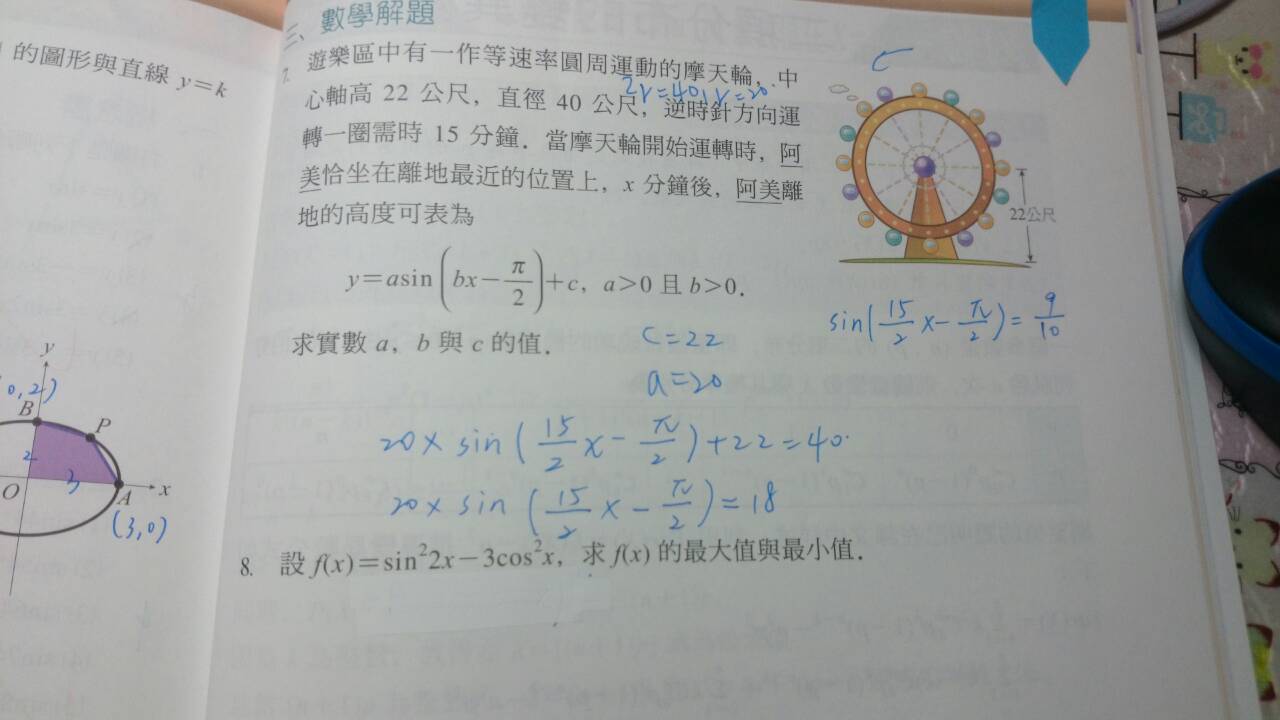 的圖形與直線 y=k
三、數學解題
7. 遊樂區中有一作等速率圓周運動的摩天輪，中
2r=40, r=20.
心軸高 22 公尺，直徑 40 公尺，逆時針方向運
轉一圈需時 15 分鐘．當摩天輪開始運轉時，阿
美恰坐在離地最近的位置上，x 分鐘後，阿美離
地的高度可表為
22公尺
y=asin(bx-π/2)+c，a>0 且 b>0．
sin(15/2 x-π/2)=9/10
求實數 a，b 與 c 的值．
c=22
a=20
20×sin(15/2 x-π/2)+22=40.
20×sin(15/2 x-π/2)=18
8. 設 f(x)=sin²2x-3cos²x，求 f(x) 的最大值與最小值．
y
0,2)
B
P
2
3
O
A
x
(3,0)